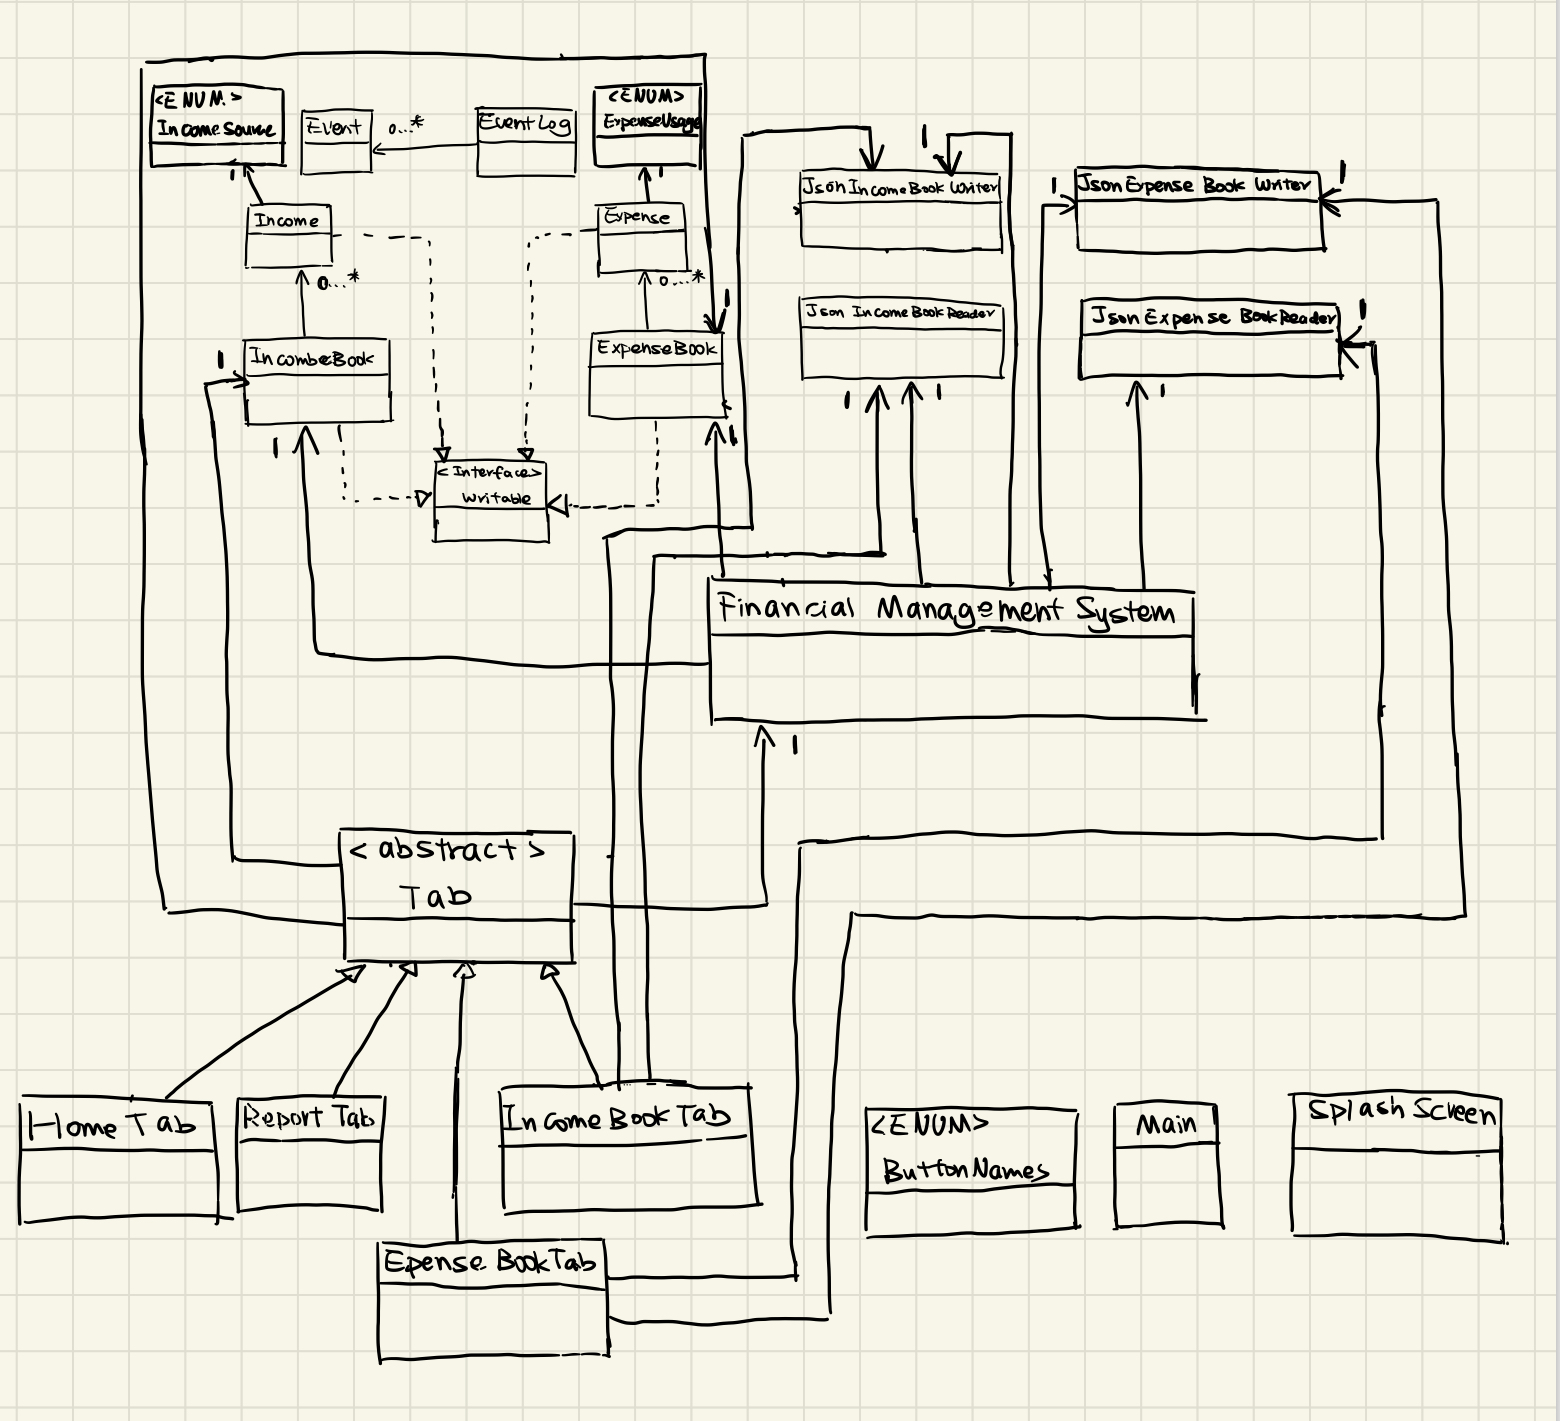 <ENUM.>
IncomeSource
Event
0...*
EventLog
<ENUM>
ExpenseUsage
1
1
Income
Expense
0...*
0...*
1
IncombeBook
1
ExpenseBook
1
1
<Interface>
Writable
1
JsonIncomeBook Writer
1
JsonExpense Book Writer
1
Json IncomeBookReader
Json Expense BookReader
1
1
1
1
Financial Management System
1
<abstract>
Tab
Home Tab
Report Tab
InComeBookTab
Epense BookTab
<ENUM>
ButtonNames
Main
Splash Screen